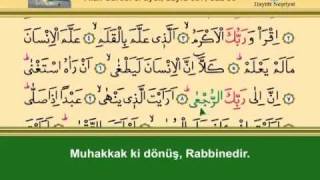 Hayrât Neşriyat
اِقْرَأْ وَرَبُّكَ الْاَكْرَمُ ٣ اَلَّذ۪ي عَلَّمَ بِالْقَلَمِ ٤ عَلَّمَ الْاِنْسَانَ
مَا لَمْ يَعْلَمْ ٥ كَلَّٓا اِنَّ الْاِنْسَانَ لَيَطْغٰى ٦ اَنْ رَاٰهُ اسْتَغْنٰى ٧
اِنَّ اِلٰى رَبِّكَ الرُّجْعٰى ٨ اَرَاَيْتَ الَّذ۪ي يَنْهٰى ٩ عَبْدًا اِذَا صَلّٰى ١٠
Muhakkak ki dönüş, Rabbinedir.